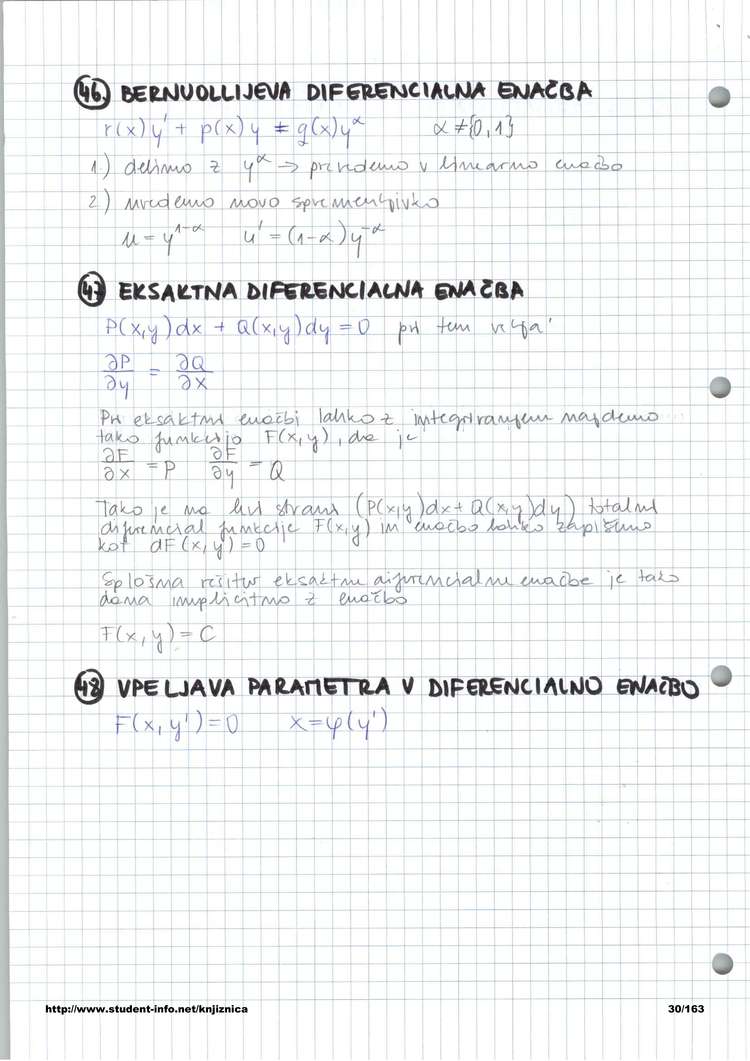 46 BERNUOLLIJEVA DIFERENCIALNA ENAČBA
r(x)y' + p(x)y = g(x)y^α α ≠ {0,1}
1) delimo z y^α → privedemo v linearno enačbo
2) uvedemo novo spremenljivko
u = y^1-α u' = (1-α)y^-α
47 EKSAKTNA DIFERENCIALNA ENAČBA
P(x,y)dx + Q(x,y)dy = 0 pri tem velja
∂P/∂y = ∂Q/∂x
Pri eksaktni enačbi lahko z integriranjem najdemo
tako funkcijo F(x,y), da je
∂F/∂x = P ∂F/∂y = Q
Tako je na levi strani (P(x,y)dx + Q(x,y)dy) totalni
diferencial funkcije F(x,y) in enačbo lahko zapišemo
kot dF(x,y) = 0
Splošna rešitev eksaktne diferencialne enačbe je tako
dana implicitno z enačbo
F(x,y) = C
48 VPELJAVA PARAMETRA V DIFERENCIALNO ENAČBO
F(x,y') = 0 x = φ(y')
http://www.student-info.net/knjiznica 30/163